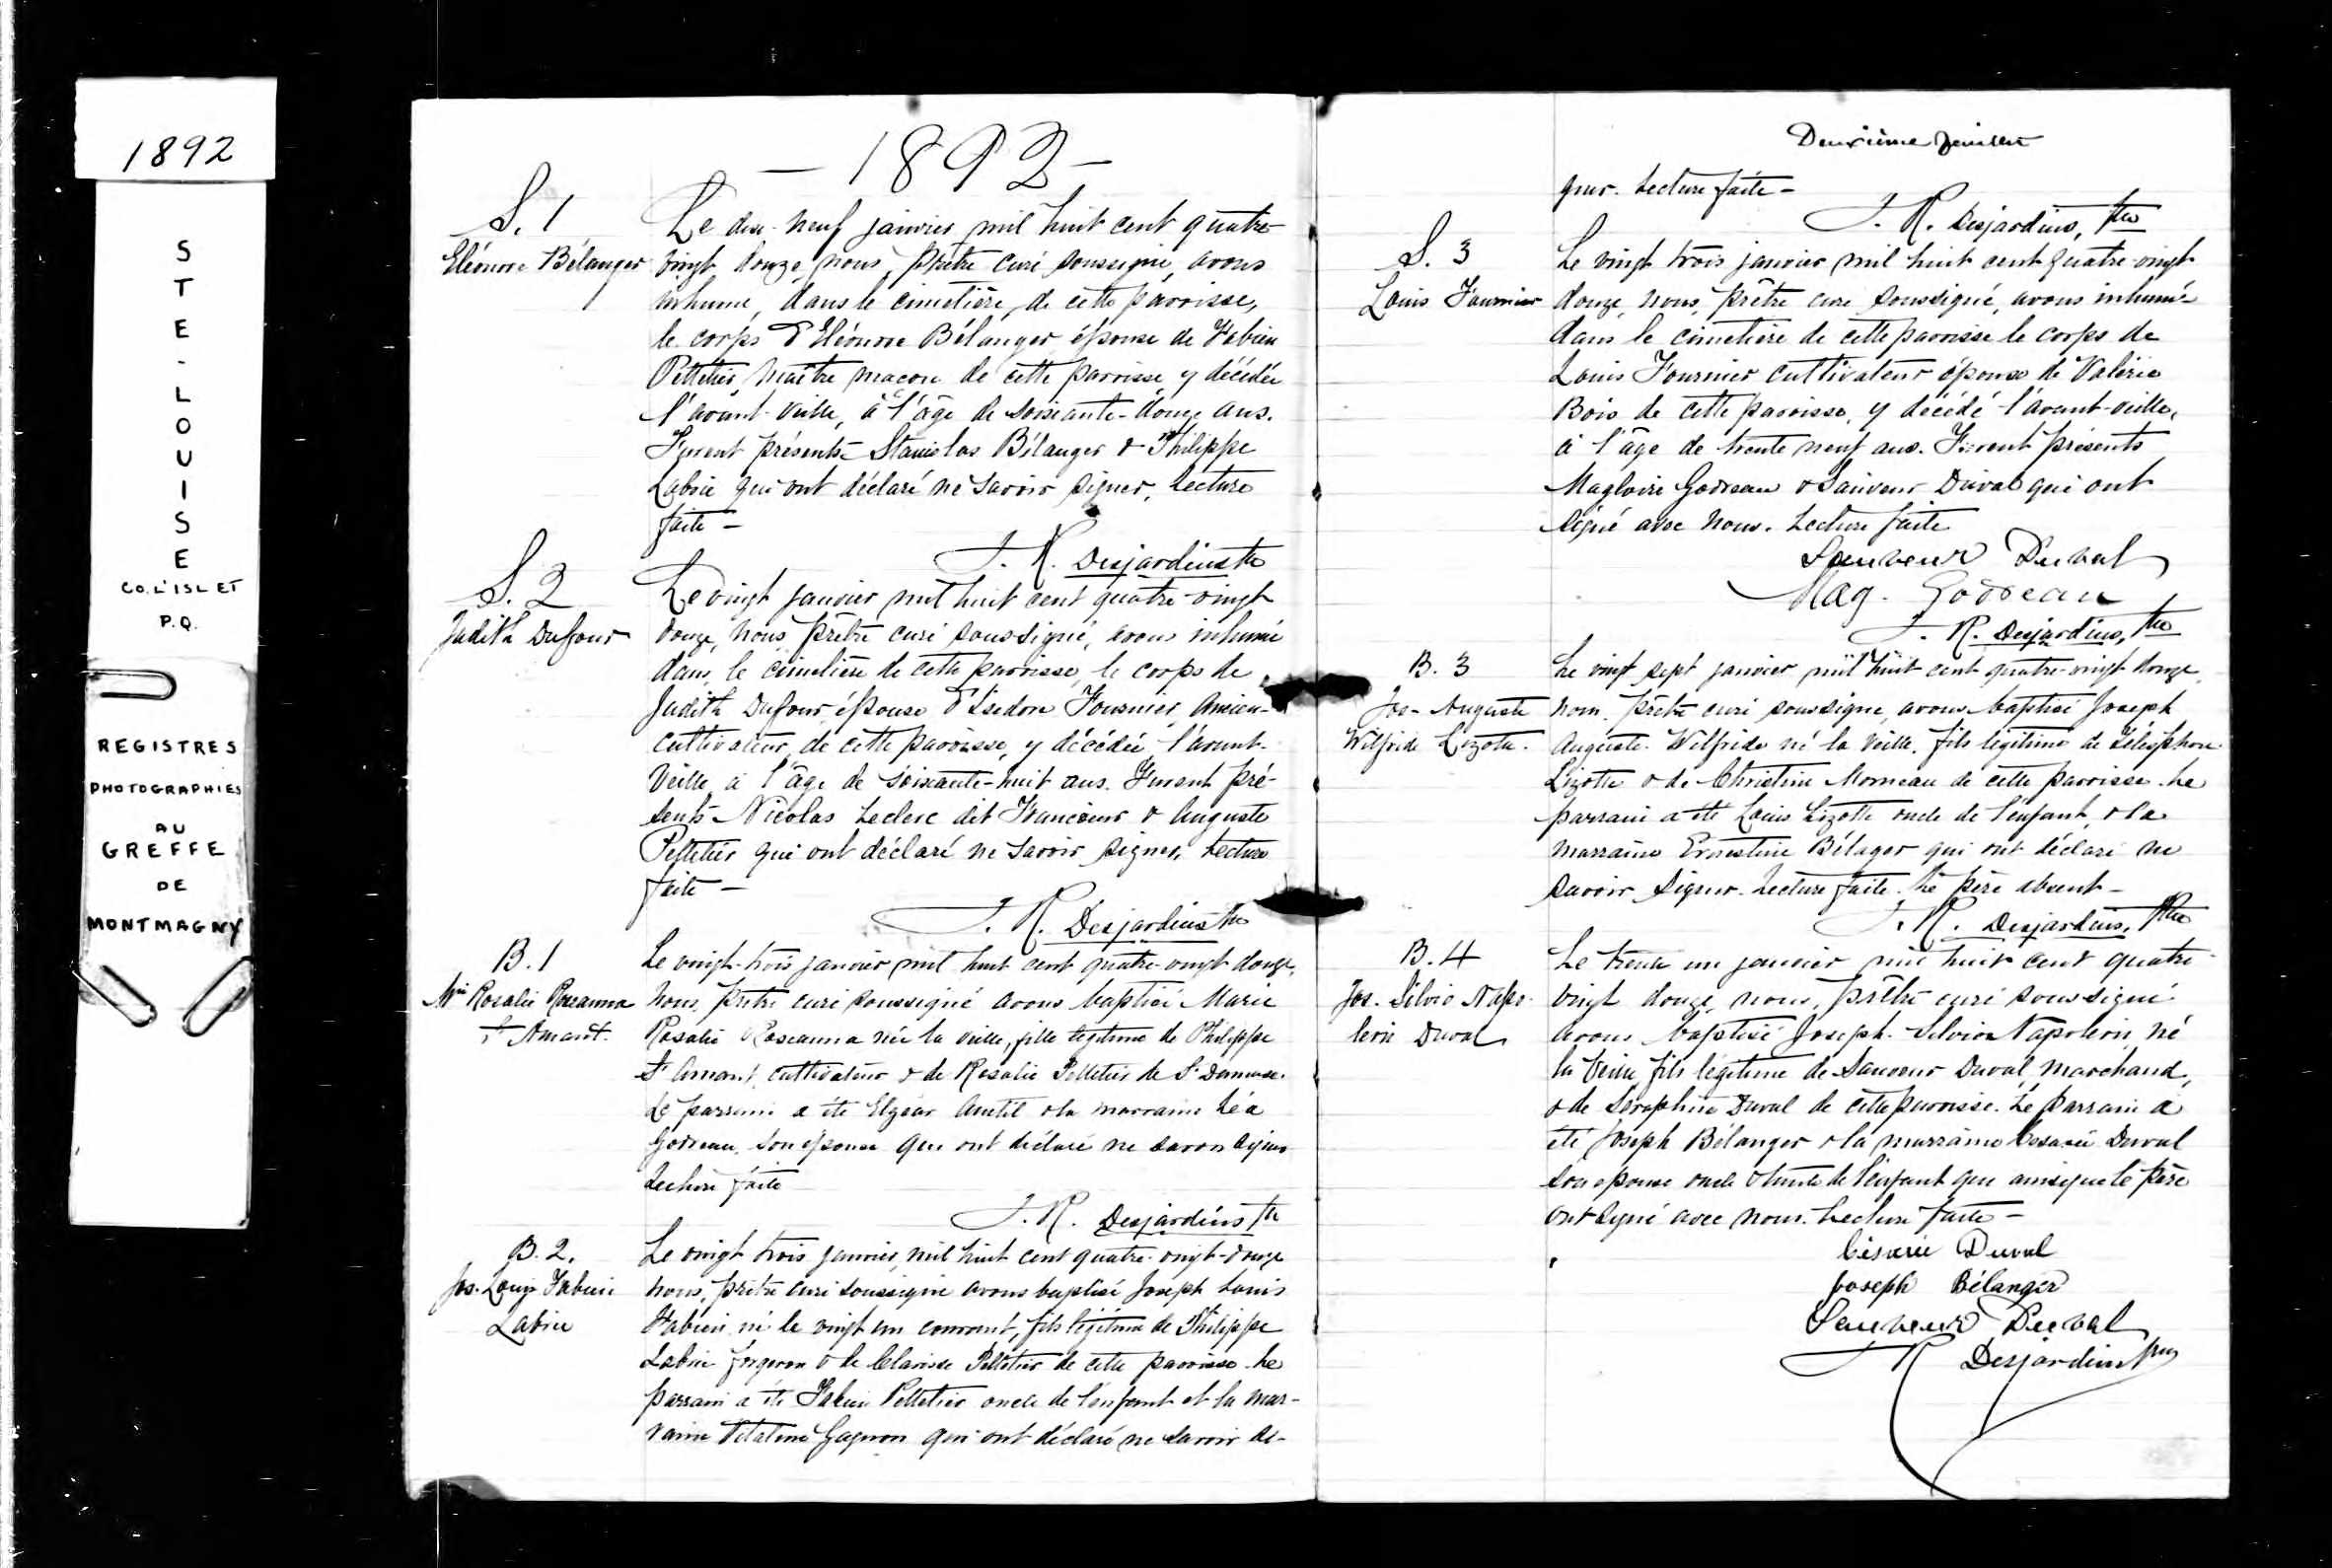 1892
STE-LOUISE
CO. L'ISLET
P.Q.
REGISTRES
PHOTOGRAPHIES
AU
GREFFE
DE
MONTMAGNY
— 1892 —
S. 1
Eléonore Bélanger
Le dix-neuf janvier mil huit cent quatre-
vingt douze, nous, prêtre curé soussigné, avons
inhumé, dans le cimetière, de cette paroisse,
le corps d'Eléonore Bélanger épouse de Fabien
Pelletier maître maçon de cette paroisse y décédée
l'avant-veille, à l'âge de soixante-douze ans.
Furent présents Stanislas Bélanger & Philippe
Labrie qui ont déclaré ne savoir signer, Lecture
faite —
J. R. Desjardins Ptre
S. 2
Judith Dufour
Le vingt janvier mil huit cent quatre-vingt
douze, nous, prêtre curé soussigné, avons inhumé
dans le cimetière de cette paroisse, le corps de
Judith Dufour épouse d'Isedore Fournier, Ancien-
cultivateur, de cette paroisse, y décédée l'avant-
veille à l'âge de soixante-huit ans. Furent pré-
sents Nicolas Leclerc dit Francoeur & Auguste
Pelletier qui ont déclaré ne savoir signer, Lecture
faite —
J. R. Desjardins Ptre
B. 1
Mie Rosalie Roseanna
St Amant.
Le vingt-trois janvier mil huit cent quatre-vingt douze,
nous, prêtre curé soussigné avons baptisé Marie
Rosalie Roseanna née la veille, fille légitime de Philippe
St Amant, cultivateur & de Rosalie Pelletier de St Damase.
Le parrain a été Elgéar Anctil & la marraine Léa
Godreau son épouse qui ont déclaré ne savoir signer
Lecture faite
J. R. Desjardins Ptre
B. 2.
Jos. Louis Fabien
Labrie
Le vingt trois janvier, mil huit cent quatre-vingt-douze
nous, prêtre curé soussigné avons baptisé Joseph Louis
Fabien né le vingt un courant, fils légitime de Philippe
Labrie forgeron & de Clarisse Pelletier de cette paroisse. Le
parrain a été Fabien Pelletier oncle de l'enfant et la mar-
raine Gagnon qui ont déclaré ne savoir si-
Deuxième
gner. Lecture faite —
J. R. Desjardins, Ptre
S. 3
Louis Fournier
Le vingt trois janvier mil huit cent quatre-vingt
douze, nous, prêtre curé soussigné, avons inhumé
dans le cimetière de cette paroisse le corps de
Louis Fournier cultivateur épouse de Valérie
Bois de cette paroisse, y décédé l'avant-veille,
à l'âge de trente neuf ans. Furent présents
Magloire Godreau & Sauveur Duval qui ont
signé avec nous. Lecture faite
Sauveur Duval
Mag. Godreau
J. R. Desjardins, Ptre
B. 3
Jos- Auguste
Wilfride Lizotte.
Le vingt sept janvier mil huit cent quatre-vingt douze,
nous, prêtre curé soussigné, avons baptisé Joseph
Auguste Wilfride né la veille, fils légitime de Télesphore
Lizotte & de Christine Morneau de cette paroisse. Le
parrain a été Louis Lizotte oncle de l'enfant, & la
marraine Ernestine Bélager qui ont déclaré ne
savoir signer. Lecture faite. Le père absent —
J. R. Desjardins, Ptre
B. 4
Jos. Silvio Napo-
léon Duval
Le trente un janvier mil huit cent quatre-
vingt douze, nous, prêtre curé soussigné
avons baptisé Joseph Silvio Napoléon, né
la veille fils légitime de Sauveur Duval, marchand,
& de Séraphine Duval de cette paroisse. Le parrain a
été Joseph Bélanger & la marraine Césarie Duval
son épouse oncle & tante de l'enfant qui ainsi que le père
ont signé avec nous. Lecture faite —
Césarie Duval
Joseph Bélanger
Sauveur Duval
J R Desjardins Ptre